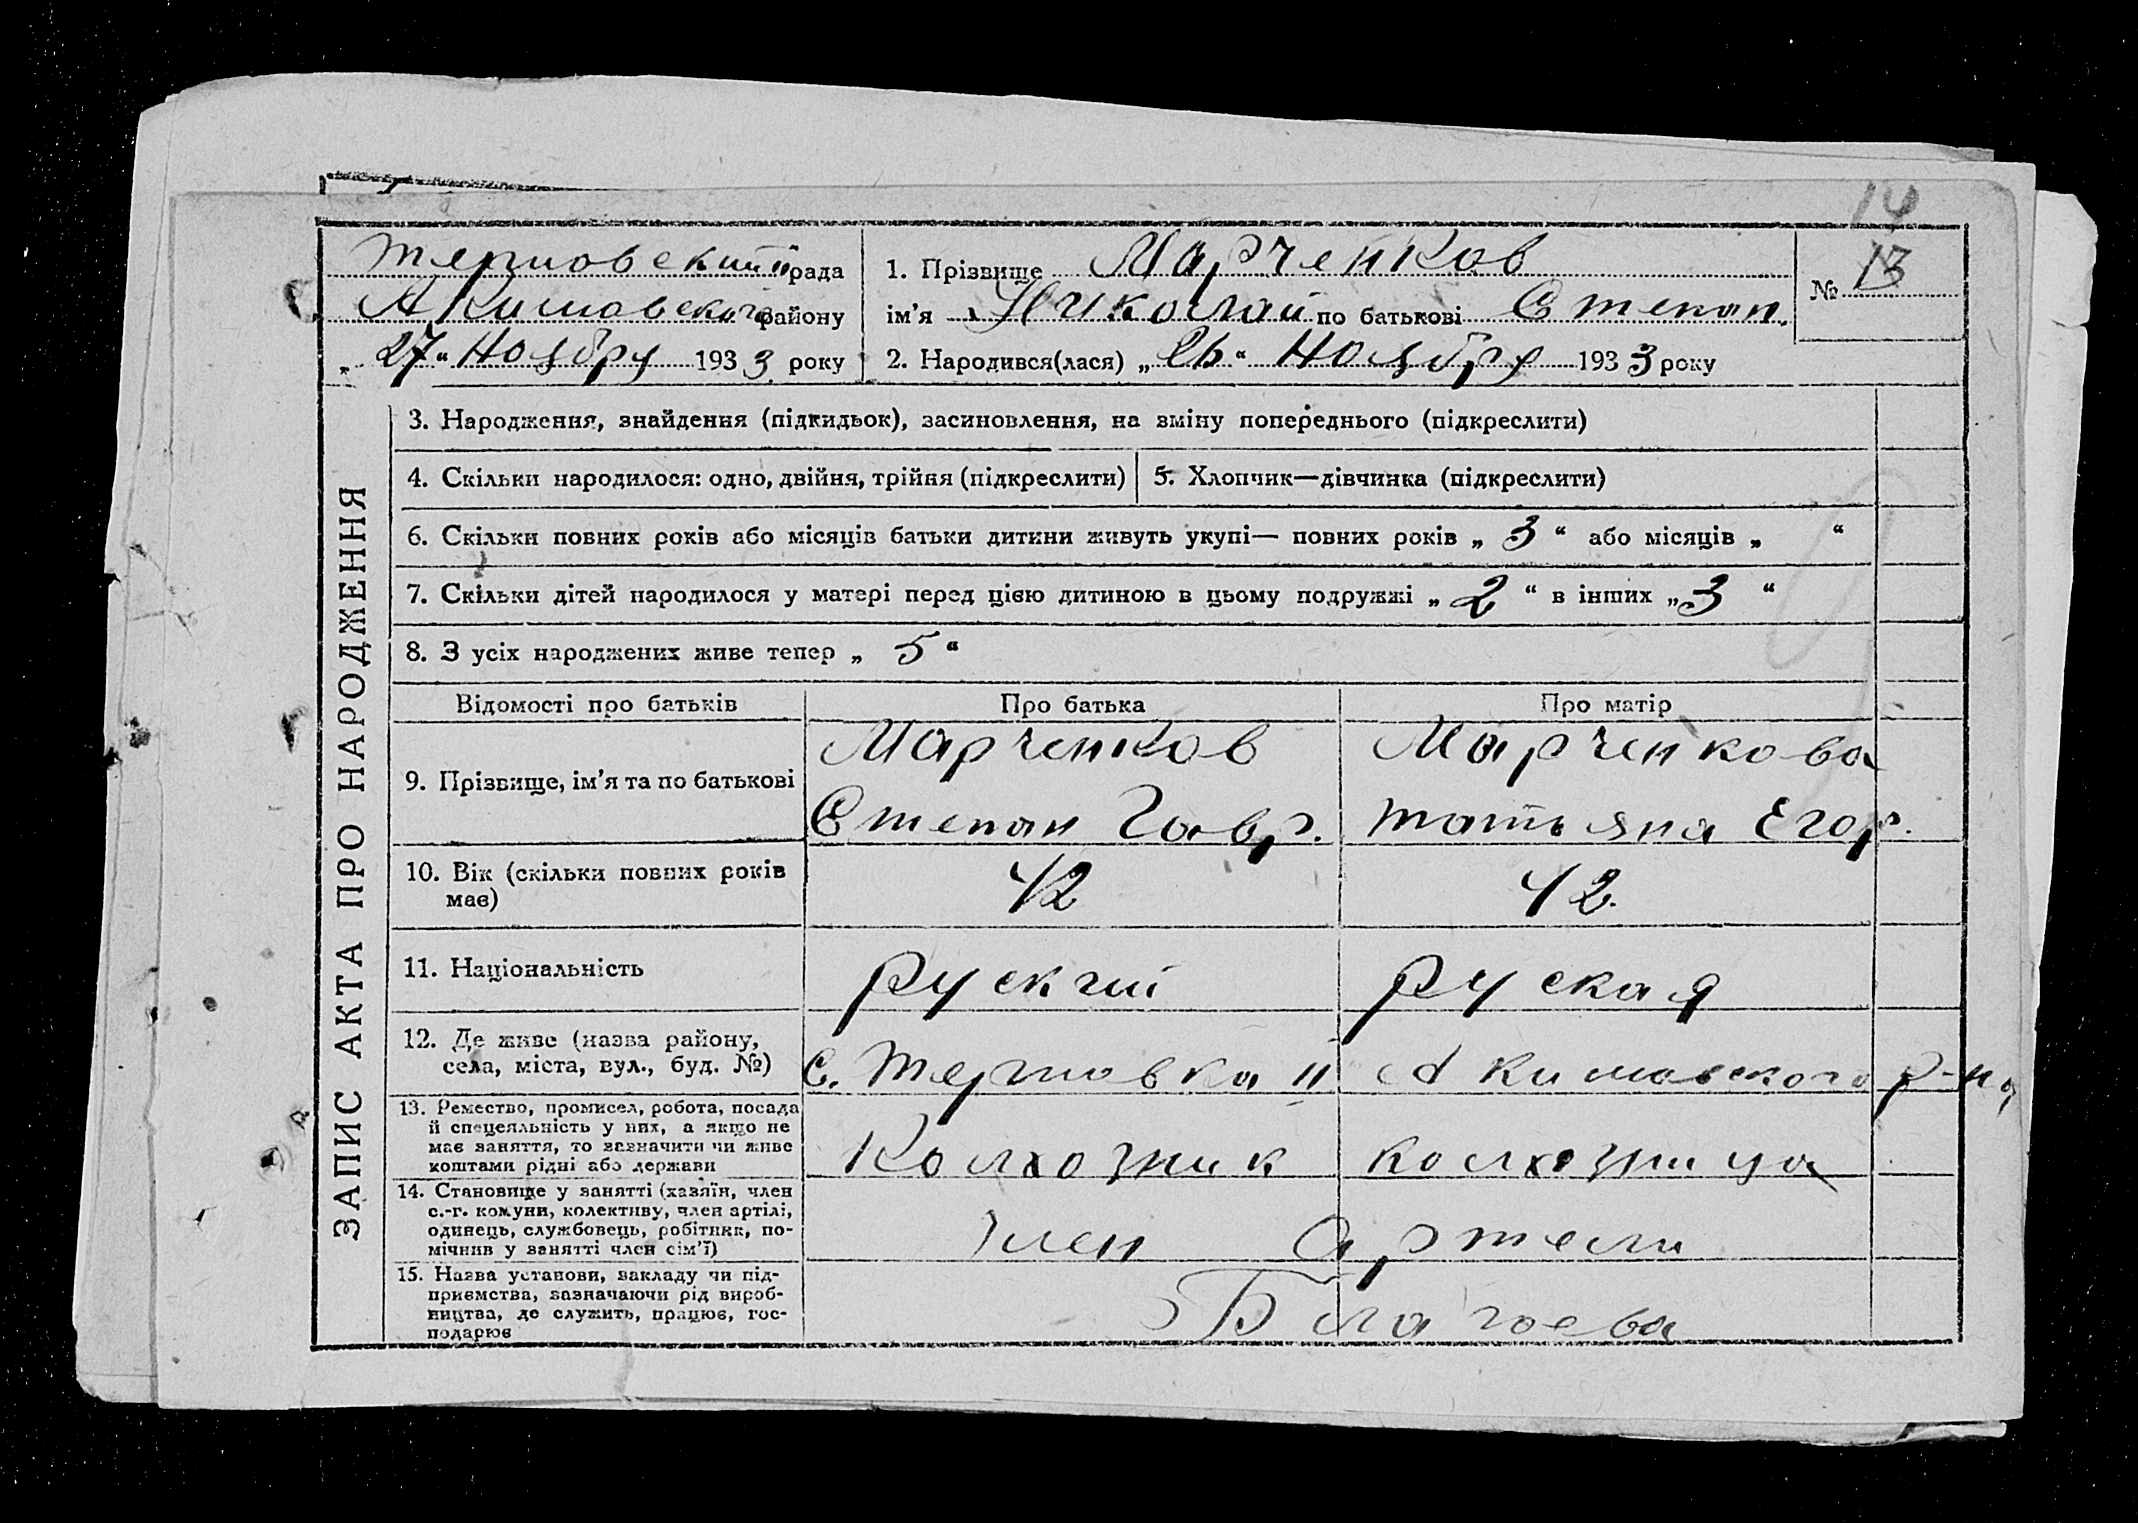 14
Терновский II рада
Акимовского району
„27“ Ноября 1933 року
1. Прізвище Марченков
ім'я Николай по батькові Степан.
2. Народився(лася) „26“ Ноября 1933 року
№ 13
ЗАПИС АКТА ПРО НАРОДЖЕННЯ
3. Народження, знайдення (підкидьок), засиновлення, на зміну попереднього (підкреслити)
4. Скільки народилося: одно, двійня, трійня (підкреслити)
5. Хлопчик—дівчинка (підкреслити)
6. Скільки повних років або місяців батьки дитини живуть укупі— повних років „ 3 “ або місяців „ “
7. Скільки дітей народилося у матері перед цією дитиною в цьому подружжі „ 2 “ в інших „ 3 “
8. З усіх народжених живе тепер „ 5 “
Відомості про батьків Про батька Про матір
9. Прізвище, ім'я та по батькові
Марченков
Степан Гавр.
Марченкова
Татьяна Егор.
10. Вік (скільки повних років
має)
42
42.
11. Національність
руский
руская
12. Де живе (назва району,
села, міста, вул., буд. №)
С. Терновка II Акимовского р-на
13. Ремество, промисел, робота, посада
й спецеяльність у них, а якщо не
має заняття, то зазначити чи живе
коштами рідні або держави
Колхозник
колхозница
14. Становище у занятті (хазяїн, член
с.-г. комуни, колективу, член артілі,
одинець, службовець, робітник, по-
мічник у занятті член сім'ї)
член Артели
15. Назва установи, закладу чи під-
приємства, зазначаючи рід вироб-
ництва, де служить, працює, гос-
подарює